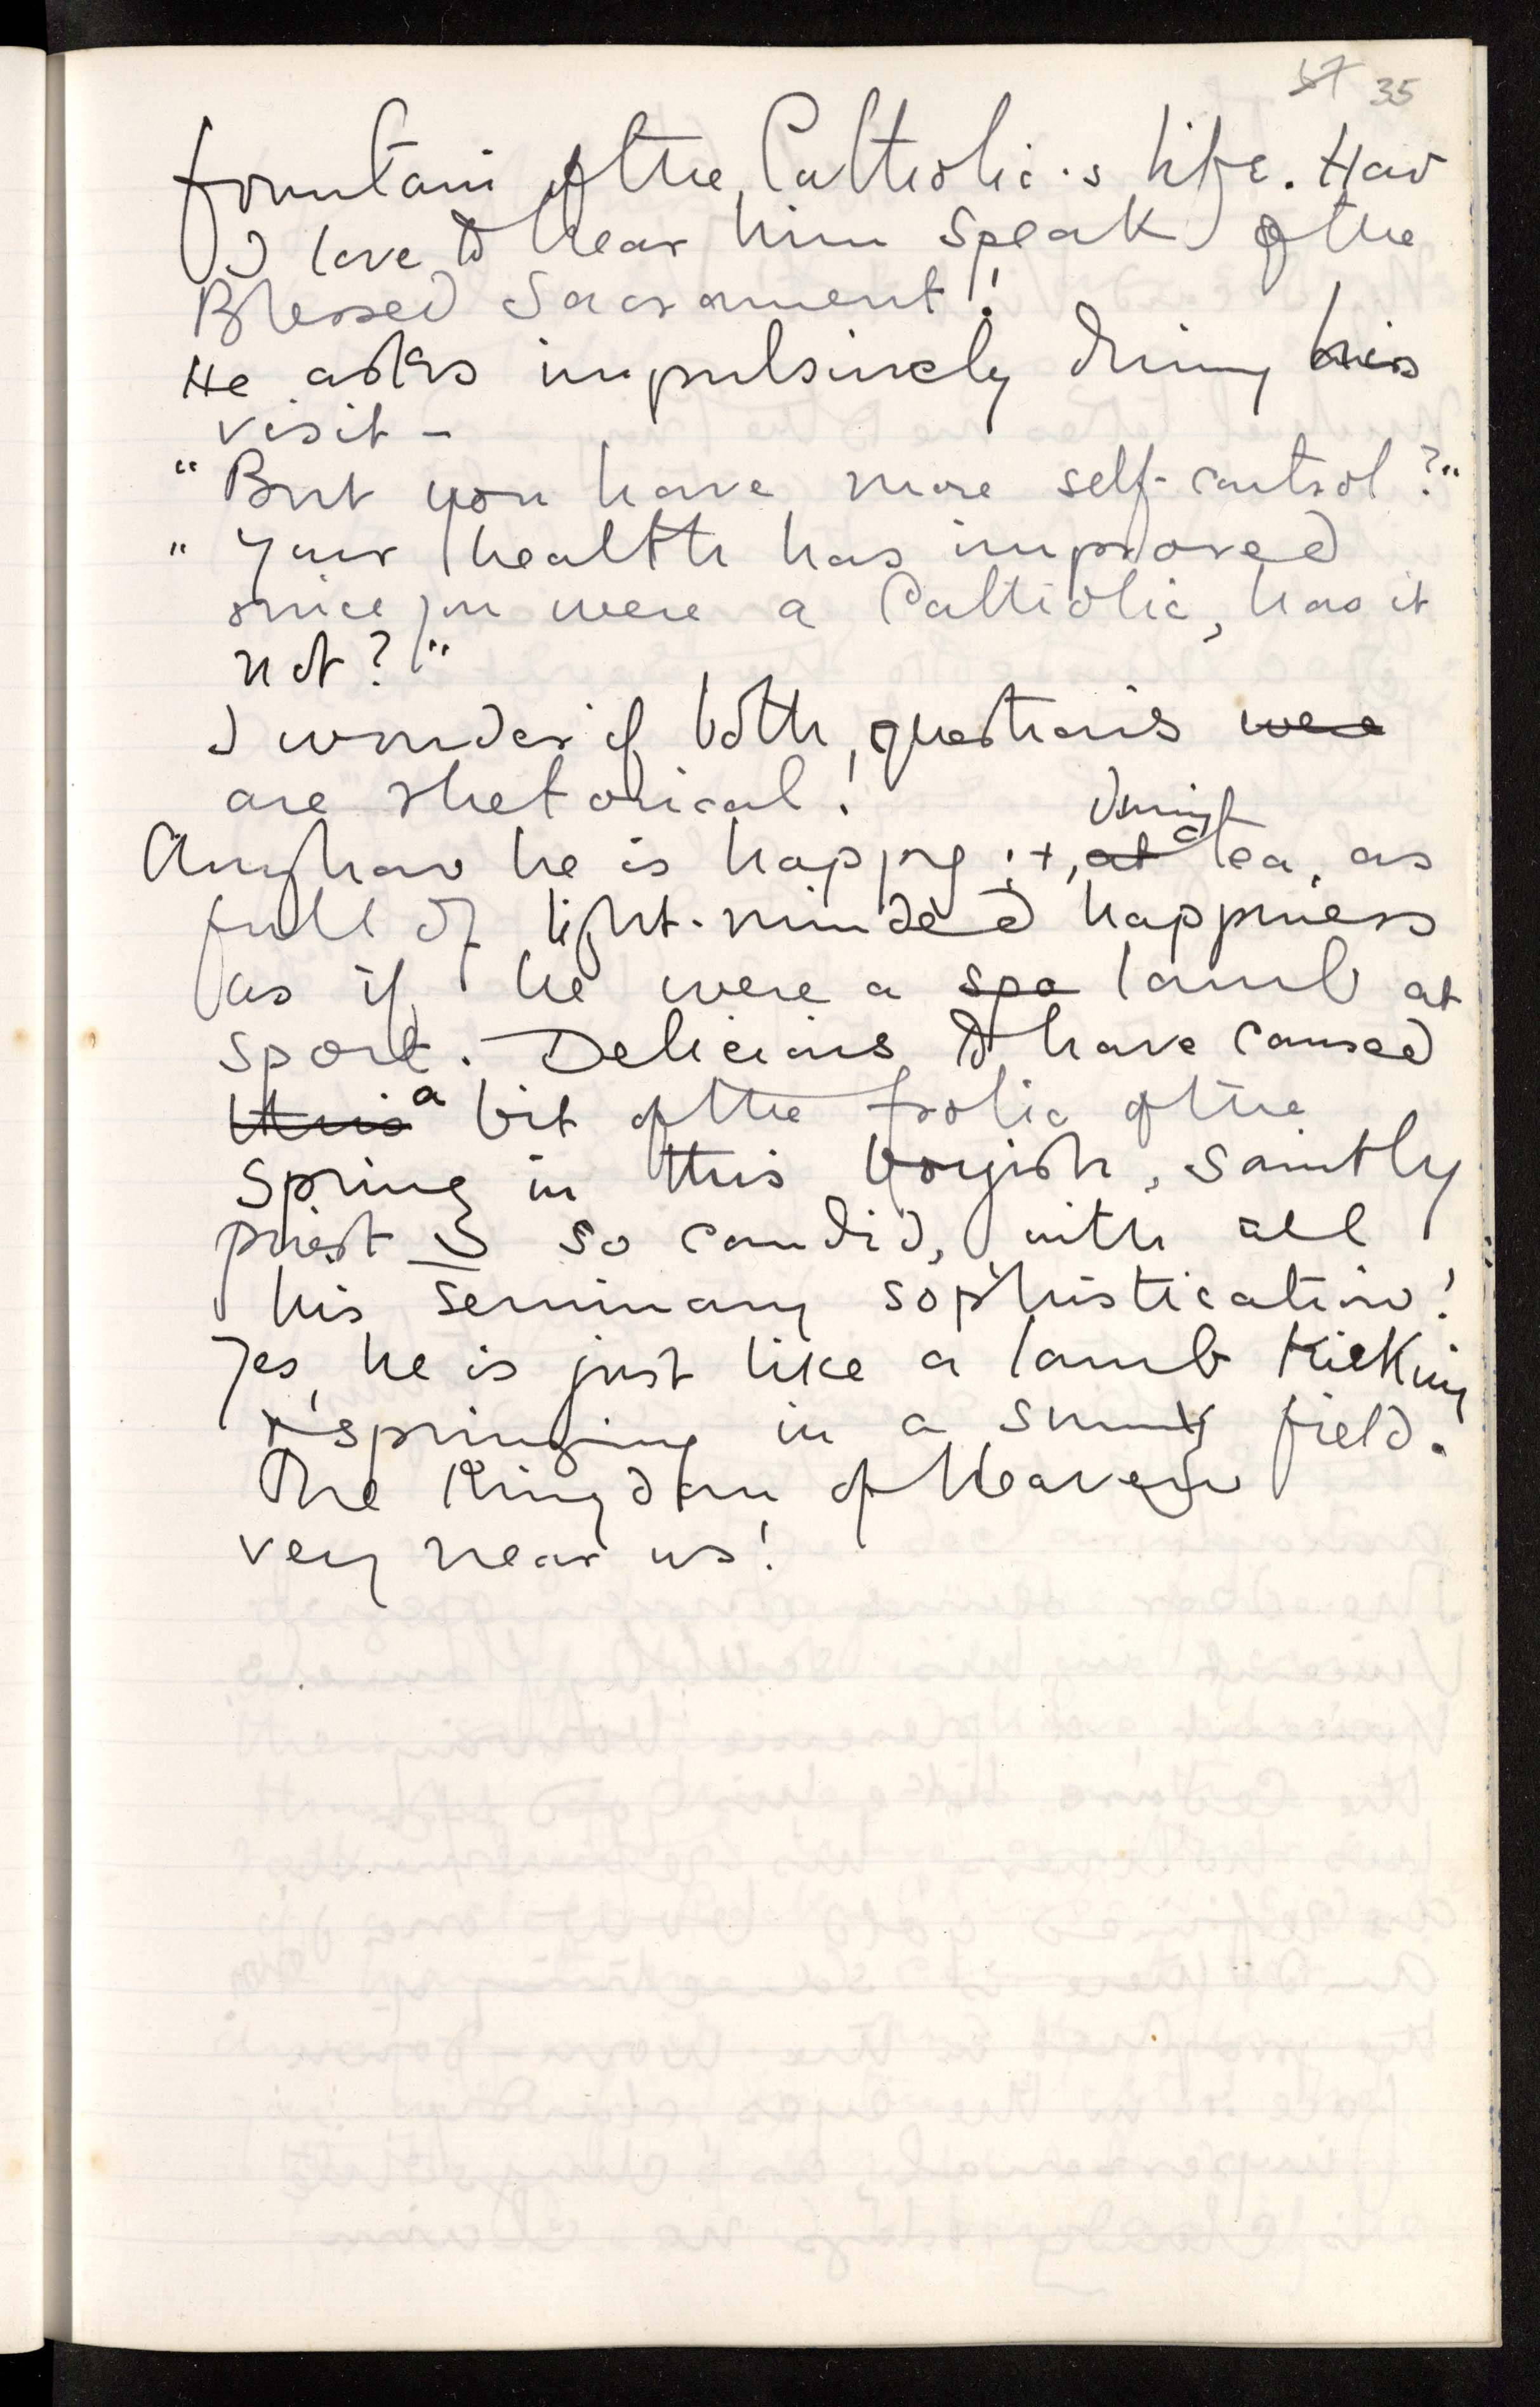 57 35
fountain of the Catholic's life. How
I love to hear him speak of the
Blessed Sacrament!
He asks impulsively during his
visit —
"But you have more self-control?"
"Your health has improved
since you were a Catholic, has it
not?"
I wonder if both questions were
are rhetorical!
Anyhow he is happy; +, at during tea, as
full of light-minded happiness
as if he were a spo lamb at
sport. Delicious to have caused
this a bit of the frolic of the
Spring in this boyish, saintly
priest — so candid, with all
his seminary sophistication!
Yes, he is just like a lamb kicking
+ springing in a sunny field.
The Kingdom of Heaven
very near us!